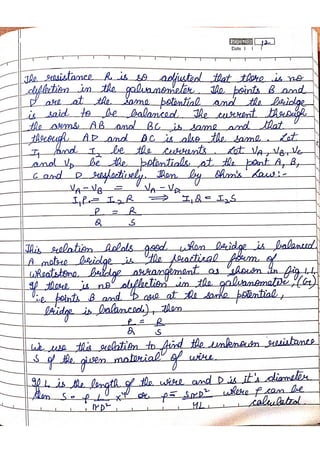 PAGE NO. 12
Date: / /
The resistance R is so adjusted that there is no
deflection in the galvanometer. The points B and
D are at the same potential and the bridge
is said to be balanced. The current through
the arms AB and BC is same and that
through AD and DC is also the same. Let
I₁ and I₂ be the currents. Let VA, VB, VC
and VD be the potentials at the point A, B,
C and D respectively. Then by Ohm's Law:-
VA - VB = VA - VD
I₁P = I₂R ⟹ I₁Q = I₂S
P/Q = R/S
This relation holds good when bridge is balanced
A metre bridge is the practical form of
wheatstone bridge arrangement as shown in fig 1.1.
If there is no deflection in the galvanometer, (G)
i.e. points B and D are at the same potential,
bridge is balanced), then
P/Q = R/S
We use this relation to find the unknown resistance
S of the given material of wire.
If L is the length of the wire and D is it's diameter
then S = ρ L/πD² × 4 or ρ = SπD²/4L where ρ can be
calculated.